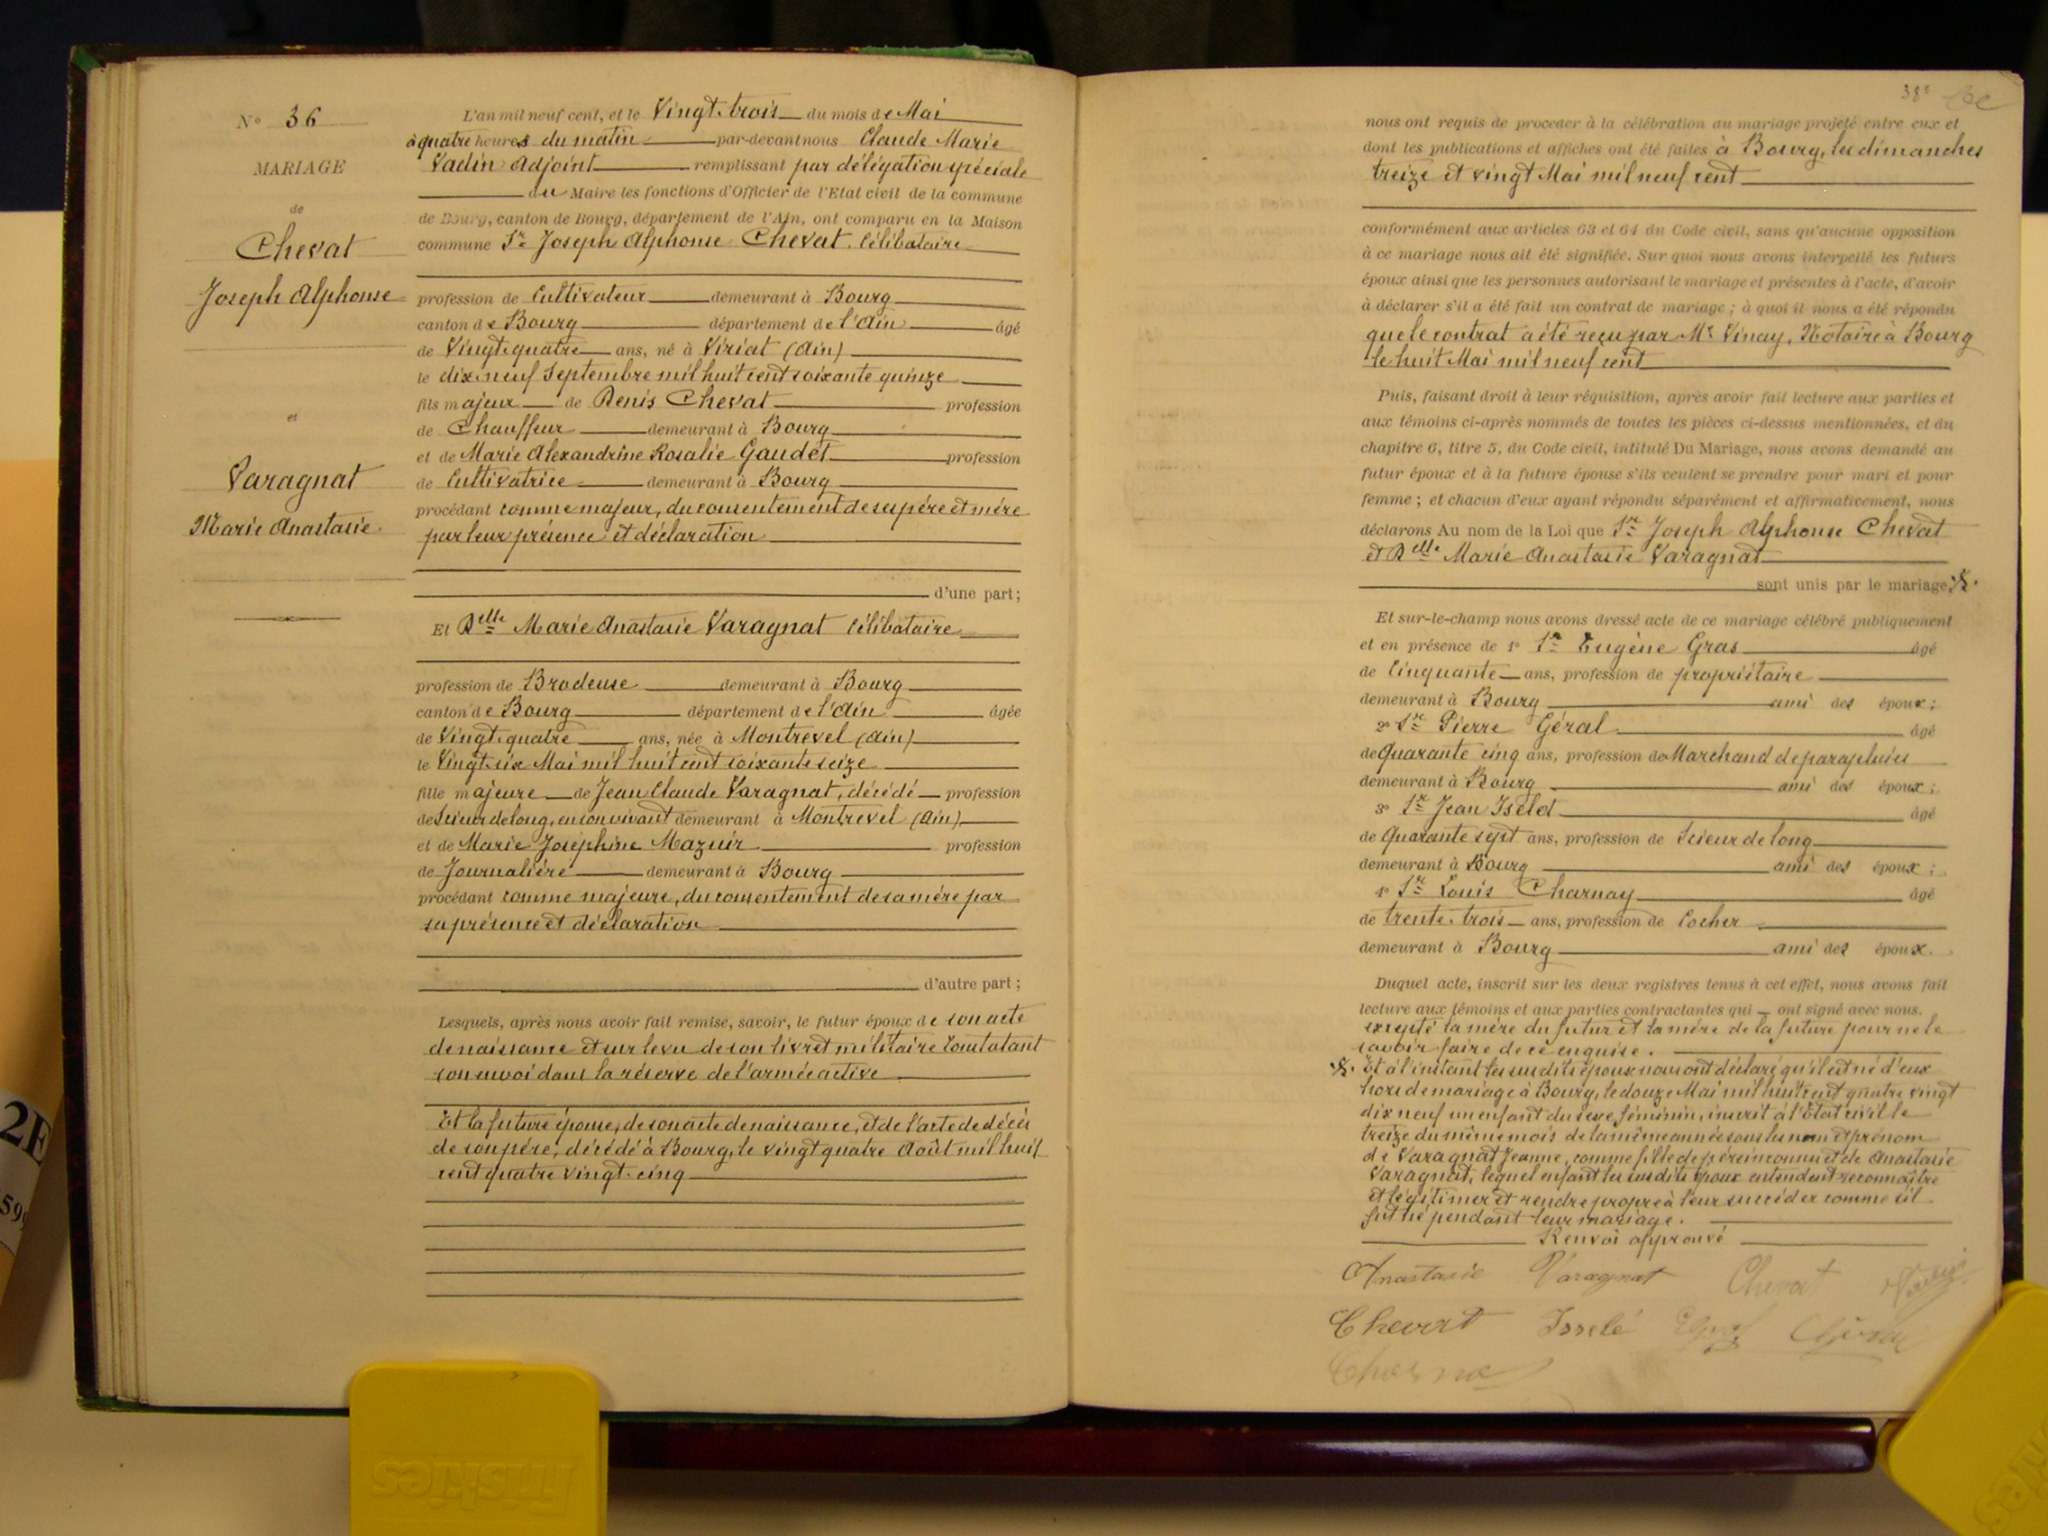 N° 36
MARIAGE
de
Chevat
Joseph Alphonse
et
Varagnat
Marie Anastasie.
L'an mil neuf cent, et le Vingt-trois du mois de Mai
à quatre heures du matin par-devant nous Claude Marie
Vadin Adjoint remplissant par délégation spéciale
du Maire les fonctions d'Officier de l'Etat civil de la commune
de Bourg, canton de Bourg, département de l'Ain, ont comparu en la Maison
commune Sr Joseph Alphonse Chevat, Célibataire
profession de Cultivateur demeurant à Bourg
canton de Bourg département de l'Ain âgé
de Vingt-quatre ans, né à Viriat (Ain)
le dix-neuf Septembre mil huit cent soixante quinze
fils majeur de Denis Chevat profession
de Chauffeur demeurant à Bourg
et de Marie Alexandrine Rosalie Gaudet profession
de Cultivatrice demeurant à Bourg
procédant comme majeur, du consentement de ses père et mère
par leur présence et déclaration
d'une part;
Et Delle Marie Anastasie Varagnat Célibataire
profession de Brodeuse demeurant à Bourg
canton de Bourg département de l'Ain âgée
de Vingt-quatre ans, née à Montrevel (Ain)
le Vingt-six Mai mil huit cent soixante seize
fille majeure de Jean Claude Varagnat, décédé profession
de Scieur de long, en son vivant demeurant à Montrevel (Ain)
et de Marie Joséphine Mazuir profession
de Journalière demeurant à Bourg
procédant comme majeure, du consentement de sa mère par
sa présence et déclaration
d'autre part;
Lesquels, après nous avoir fait remise, savoir, le futur époux de son acte
de naissance et sur le vu de son livret militaire constatant
son envoi dans la réserve de l'armée active
Et la future épouse, de son acte de naissance, et de l'acte de décès
de son père, décédé à Bourg, le vingt quatre Août mil huit
cent quatre vingt-cinq
38e
nous ont requis de procéder à la célébration du mariage projeté entre eux et
dont les publications et affiches ont été faites à Bourg, les dimanches
treize et vingt Mai mil neuf cent
conformément aux articles 63 et 64 du Code civil, sans qu'aucune opposition
à ce mariage nous ait été signifiée. Sur quoi nous avons interpellé les futurs
époux ainsi que les personnes autorisant le mariage et présentes à l'acte, d'avoir
à déclarer s'il a été fait un contrat de mariage; à quoi il nous a été répondu
que le contrat a été reçu par Me Vinay, Notaire à Bourg
le huit Mai mil neuf cent
Puis, faisant droit à leur réquisition, après avoir fait lecture aux parties et
aux témoins ci-après nommés de toutes les pièces ci-dessus mentionnées, et du
chapitre 6, titre 5, du Code civil, intitulé Du Mariage, nous avons demandé au
futur époux et à la future épouse s'ils veulent se prendre pour mari et pour
femme; et chacun d'eux ayant répondu séparément et affirmativement, nous
déclarons Au nom de la Loi que Sr Joseph Alphonse Chevat
et Delle Marie Anastasie Varagnat
sont unis par le mariage.
Et sur-le-champ nous avons dressé acte de ce mariage célébré publiquement
et en présence de 1° Sr Eugène Gras âgé
de Cinquante ans, profession de propriétaire
demeurant à Bourg ami des époux;
2° Sr Pierre Géral âgé
de Quarante cinq ans, profession de Marchand de parapluies
demeurant à Bourg ami des époux;
3° Sr Jean Iseld âgé
de Quarante sept ans, profession de Scieur de long
demeurant à Bourg ami des époux;
4° Sr Louis Charnay âgé
de trente-trois ans, profession de Cocher
demeurant à Bourg ami des époux.
Duquel acte, inscrit sur les deux registres tenus à cet effet, nous avons fait
lecture aux témoins et aux parties contractantes qui ont signé avec nous.
excepté la mère du futur et la mère de la future pour ne le
savoir faire de ce enquise.
Et à l'instant les susdits époux nous ont déclaré qu'il est né d'eux
hors de mariage à Bourg, le douze Mai mil huit cent quatre vingt
dix neuf un enfant du sexe féminin, inscrit à l'Etat civil le
treize du même mois de la même année sous les nom et prénom
de Varagnat Jeanne, comme fille de père inconnu et de Anastasie
Varagnat, lequel enfant les susdits époux entendent reconnaître
et légitimer et rendre propre à leur succéder comme s'il
fut né pendant leur mariage.
Renvoi approuvé
Anastasie Varagnat Chevat
Chevat Isselé Géral